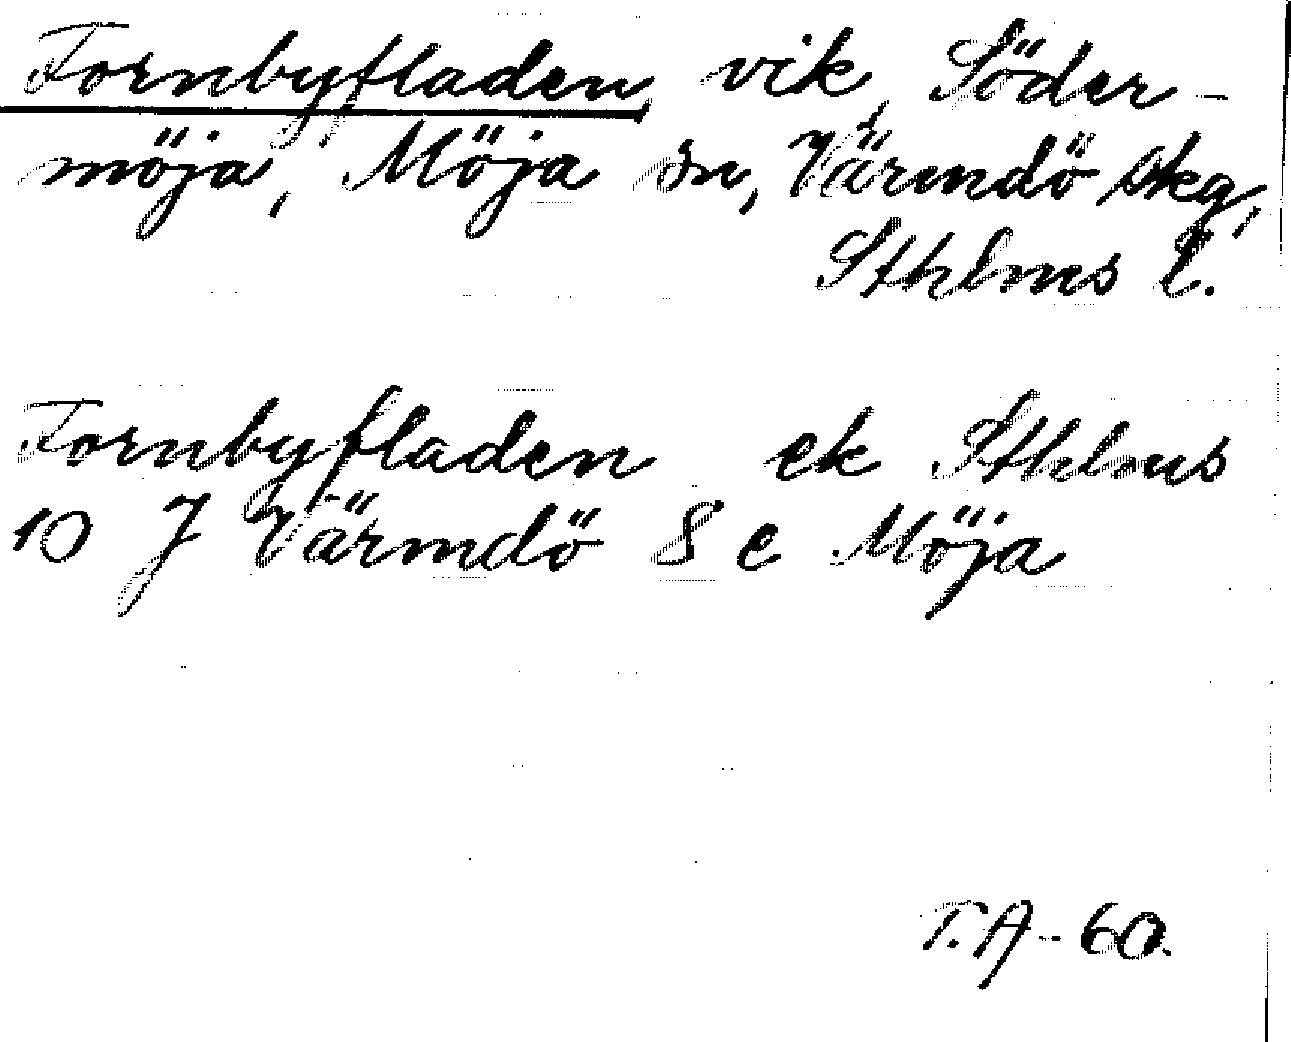 Fornbyfladen, vik, Söder-
möja, Möja sn, Värmdö skg,
Sthlms l.
Fornbyfladen ek Sthlms
10 J Värmdö 8 e Möja
T.A-60.